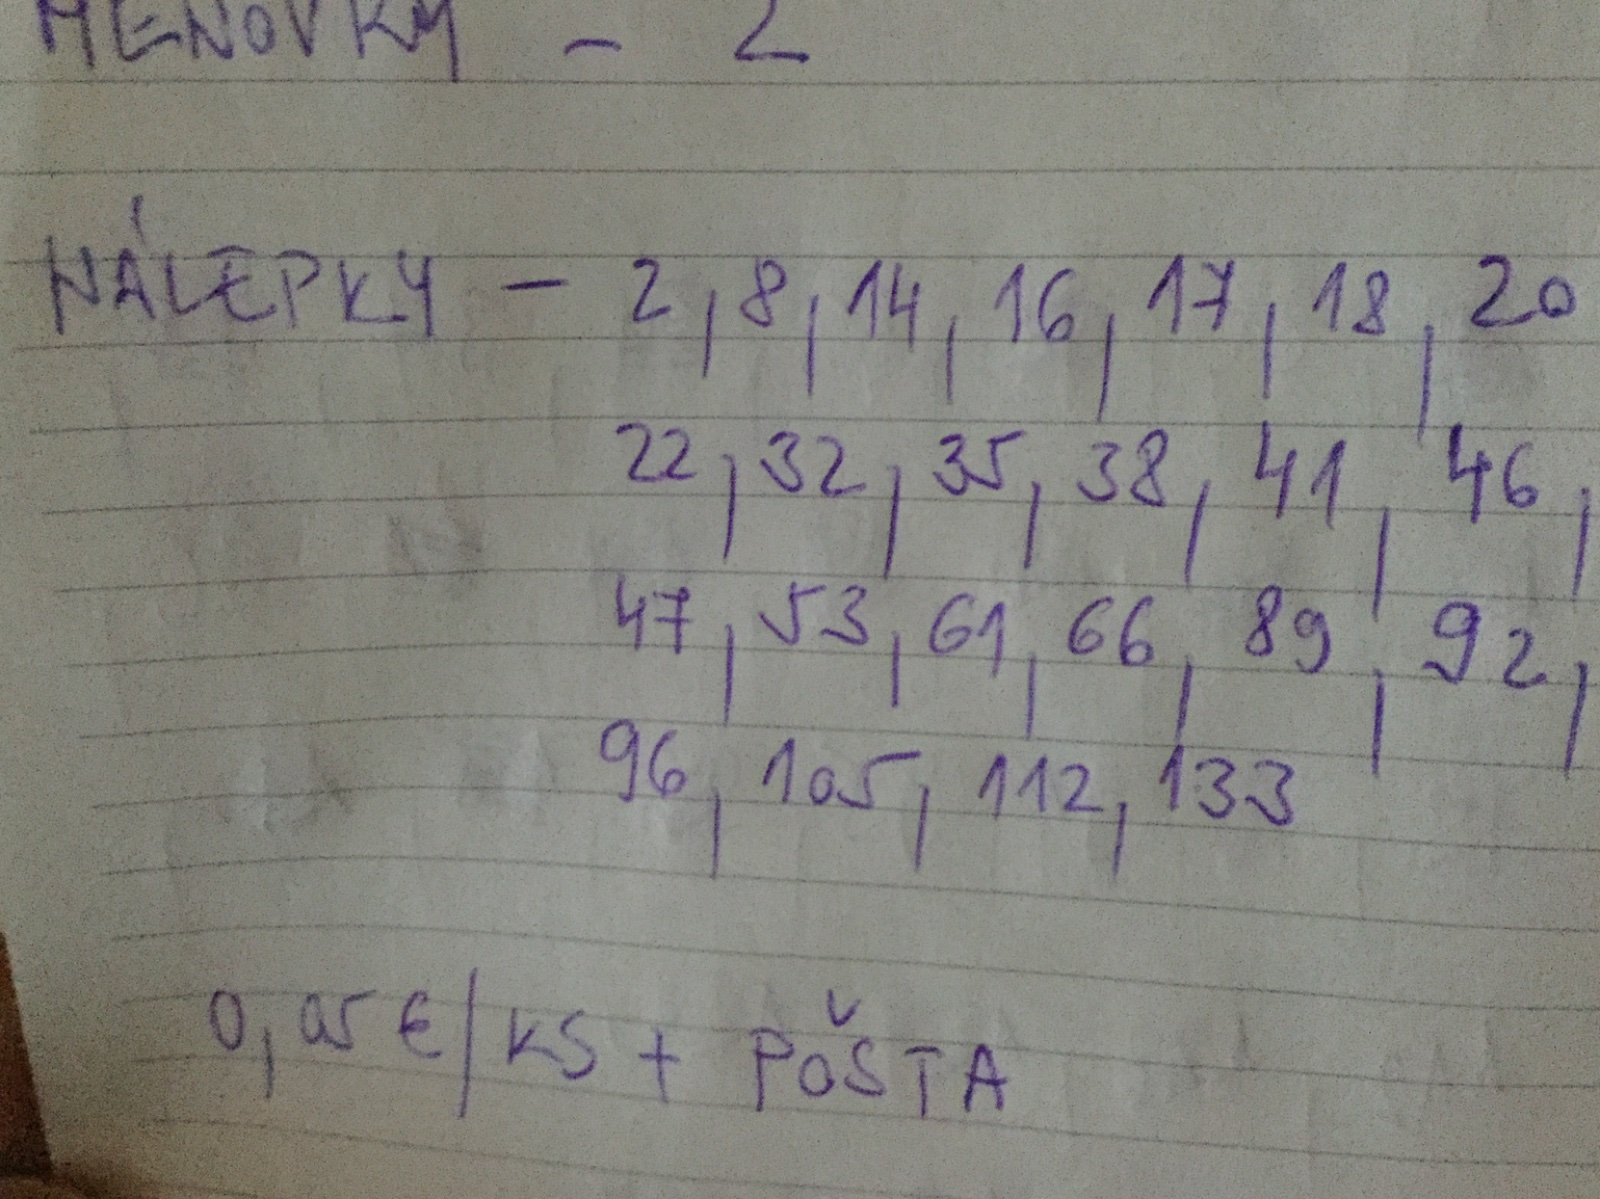 MENOVKY - 2
NÁLEPKY - 2, 8, 14, 16, 17, 18, 20
22, 32, 35, 38, 41, 46,
47, 53, 61, 66, 89, 92,
96, 105, 112, 133
0,05 €/KS + POŠTA